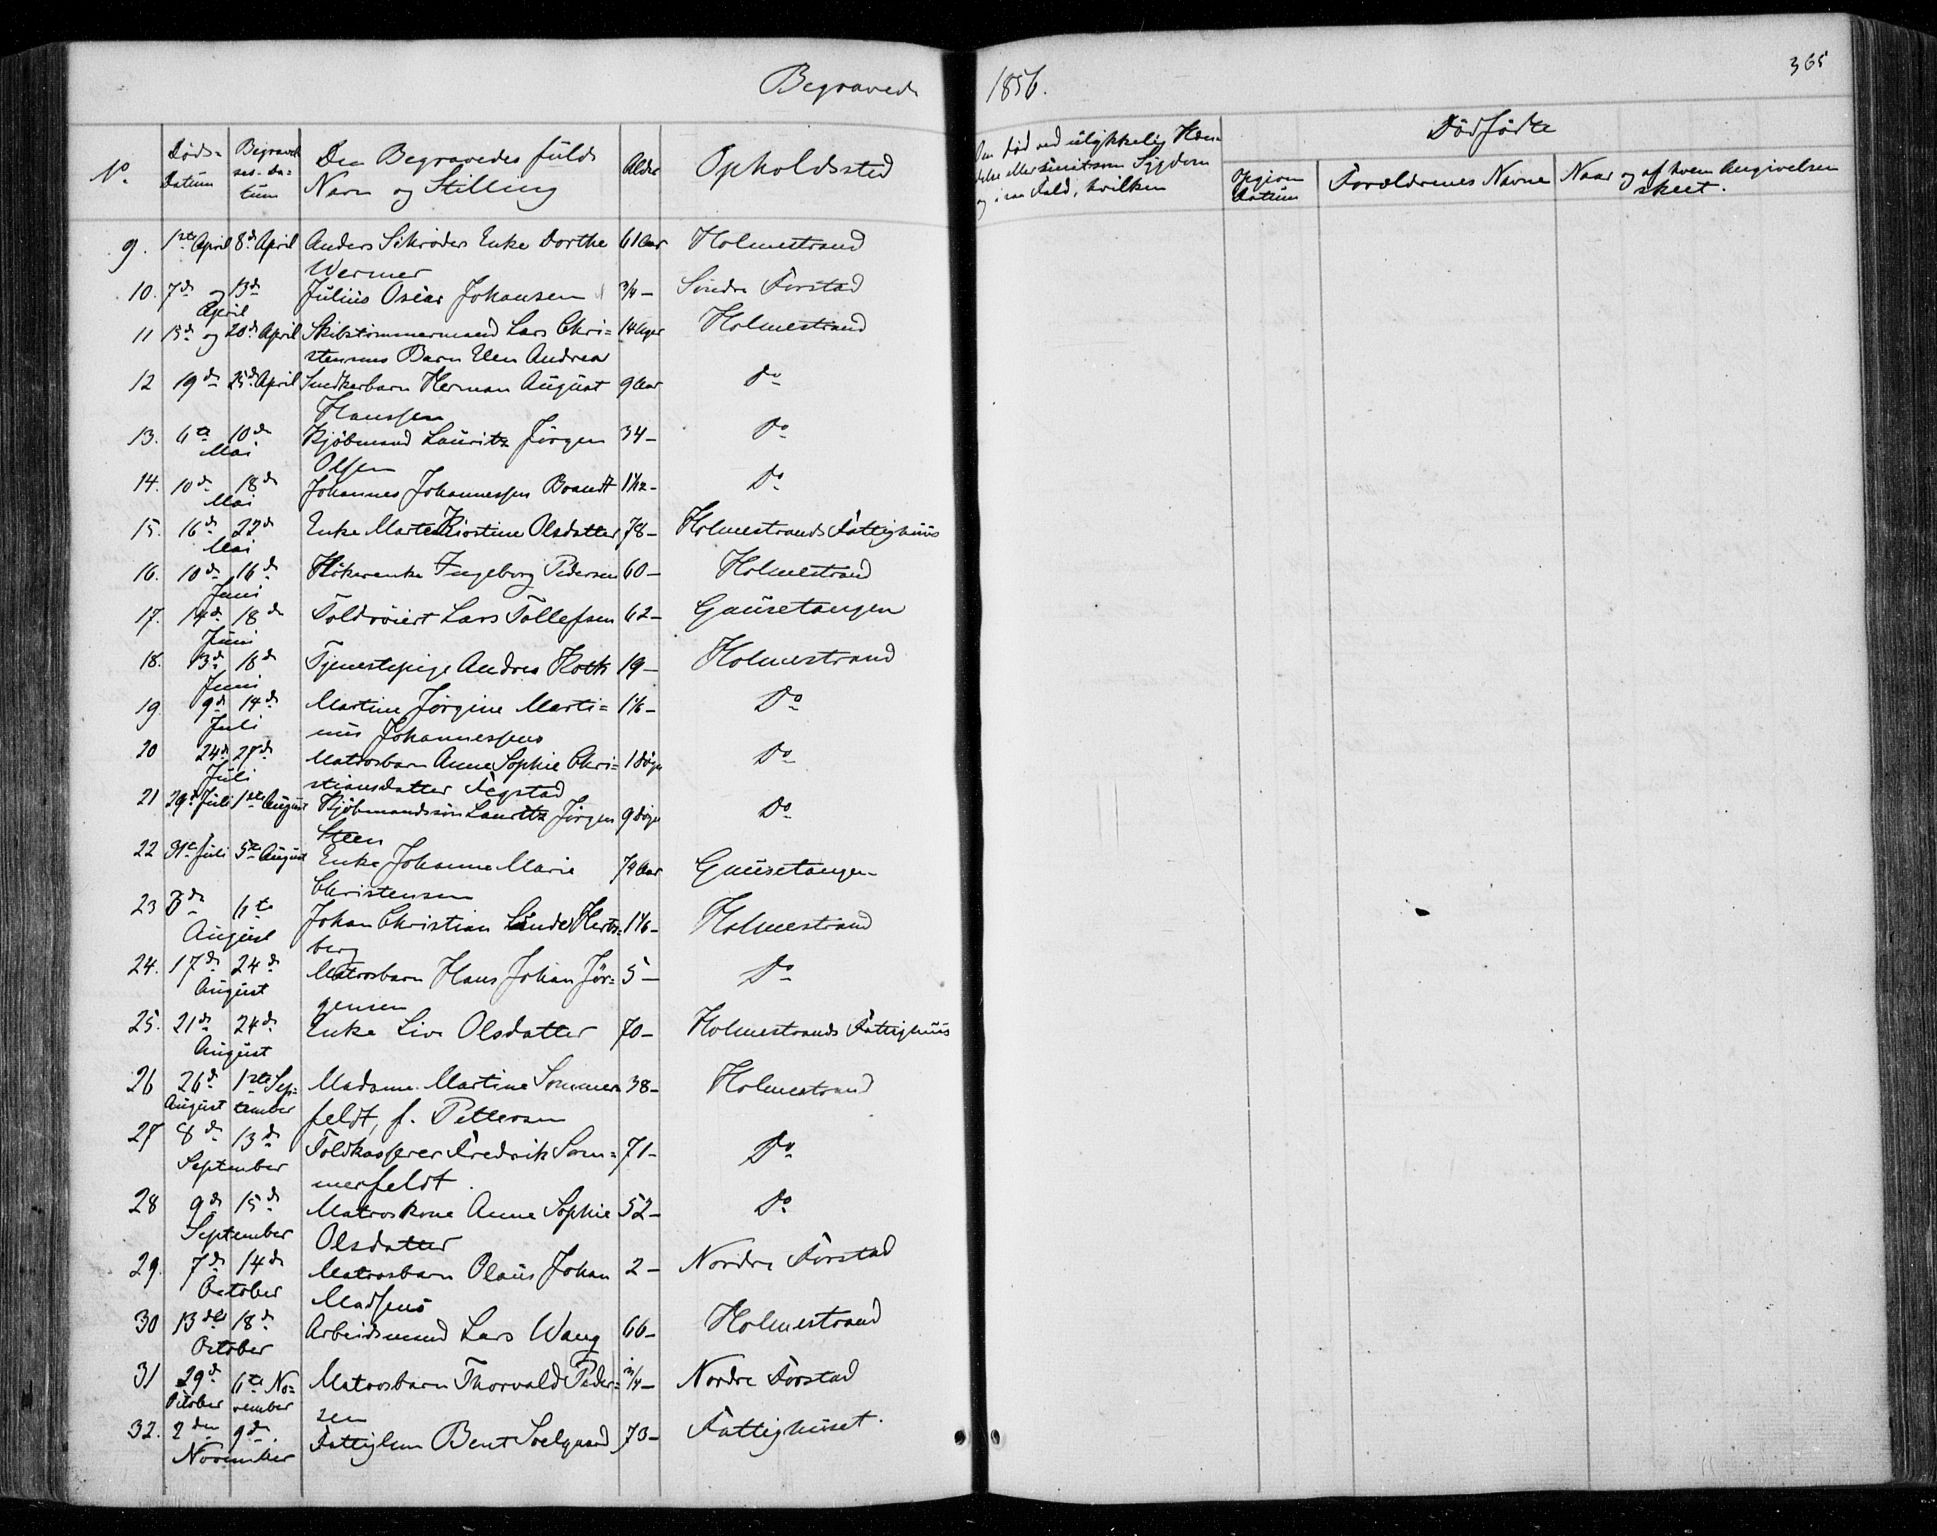 Begravede 1856. 365
No. Døds-Datum Begravel ses-Datum Den Begravedes fulde Navn og Stilling Alder Opholdsstad Om død ved ulykkelig Hændelse eller smitsom Sygdom og i saa Fald, hvilken Dødfødte
Opgiven Datum Forældrenes Navne Naar og af hvem Angivelsen skeet.
9. 1ste April 8de April Anders Schrøders Enke Dorthe 61 Aar Holmestrand
Wermer
10. 7de og 13de Julius Oscar Johansen 3/4 - Søndre Forstad
April
11 15de og 20de April Skibstømmermand Lars Chri= 14 Uger Holmestrand
stensens Barn Elen Andrea
12 19de 25de April Snedkerbarn Herman August 9 Aar Do
Hanssen
13. 6te 10de Kjøbmand Lauritz Jørgen 34 - Do
Mai Olsen
14. 10de 18de Johannes Johannessen Brandt 1 1/12 - Do
Mai
15. 16de 22de Enke Marte Kirstine Olsdatter 78 - Holmestrands Fattighuus
Mai
16. 10de 16de Høkerenke Ingeborg Pedersen 60 - Holmestrand
Juni
17. 14de 18de Toldrøiert Lars Tollefsen 62 - Gausetangen
Juni
18. 13de 18de Tjenestepige Andrea 19 - Holmestrand
Juni
19. 9de 14de Martine Jørgine Marti= 1 1/6 - Do
Juli nus Johannessens
20 24de 27de Matrosbarn Anne Sophie Chri= 1 Døgn Do
Juli stiansdatter
21 29de Juli 1ste August Kjøbmandssøn Lauritz Jørgen 9 Døgn Do
Steen
22 31te Juli 5te August Enke Johanne Marie 74 Aar Gausetangen
Christensen
23 3de 6te Johan Christian Linde Herts= 1 1/6 - Holmestrand
August berg
24. 17de 24de Matrosbarn Hans Johan Jør= 5 - Do
August gensen
25. 21de 24de Enke Live Olsdatter 70 - Holmestrands Fattighuus
August
26 26de 1ste Sep= Madame Martine Sommer= 38 - Holmestrand
August tember feldt, f. Pettersen
27 8de 13de Toldkasserer Fredrik Som= 71 - Do
September merfeldt.
28 9de 15de Matroskone Anne Sophie 52 - Do
September Olsdatter
29. 7de 14de Matrosbarn Olaus Johan 2 - Nordre Forstad
October Madsens
30 13de 18de Arbeidsmand Lars Wang 66 - Holmestrand
October
31 29de 6te No= Matrosbarn Thorvald Peder= 3/4 - Nordre Forstad
October vember sen
32. 2den 9de Fattiglem Bent Soelgaard 73 - Fattighuset.
November